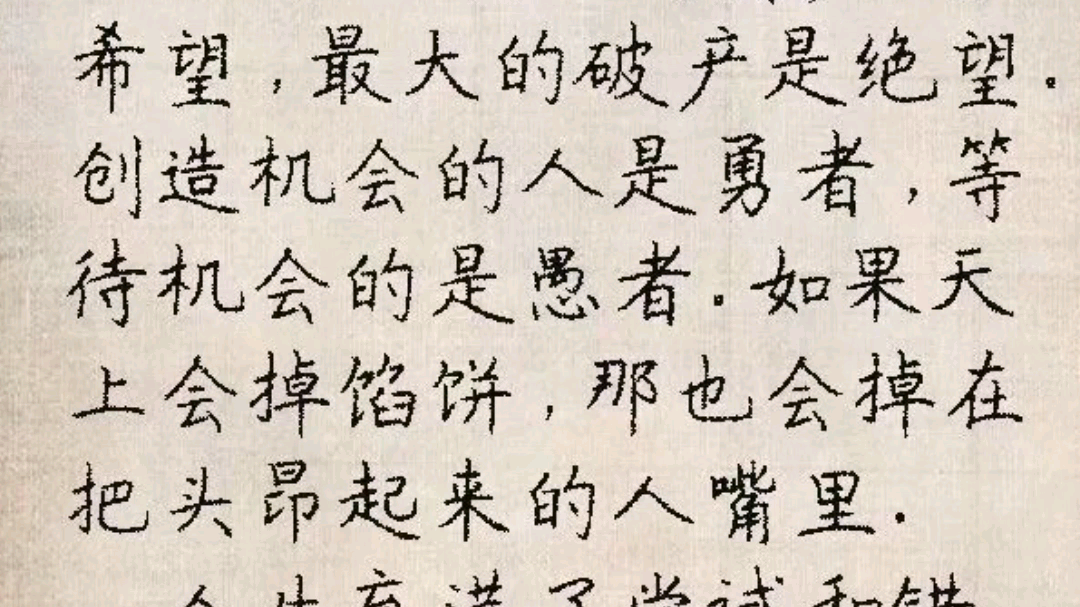 希望,最大的破产是绝望.
创造机会的人是勇者,等
待机会的是愚者.如果天
上会掉馅饼,那也会掉在
把头昂起来的人嘴里.
人生充满了尝试和错